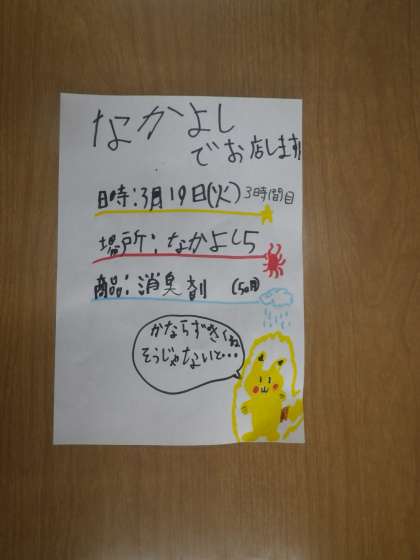 なかよし
でお店します!
日時:3月19日(火)3時間目
場所:なかよし5
商品:消臭剤 (50円)
かならずきてね
そうじゃないと…